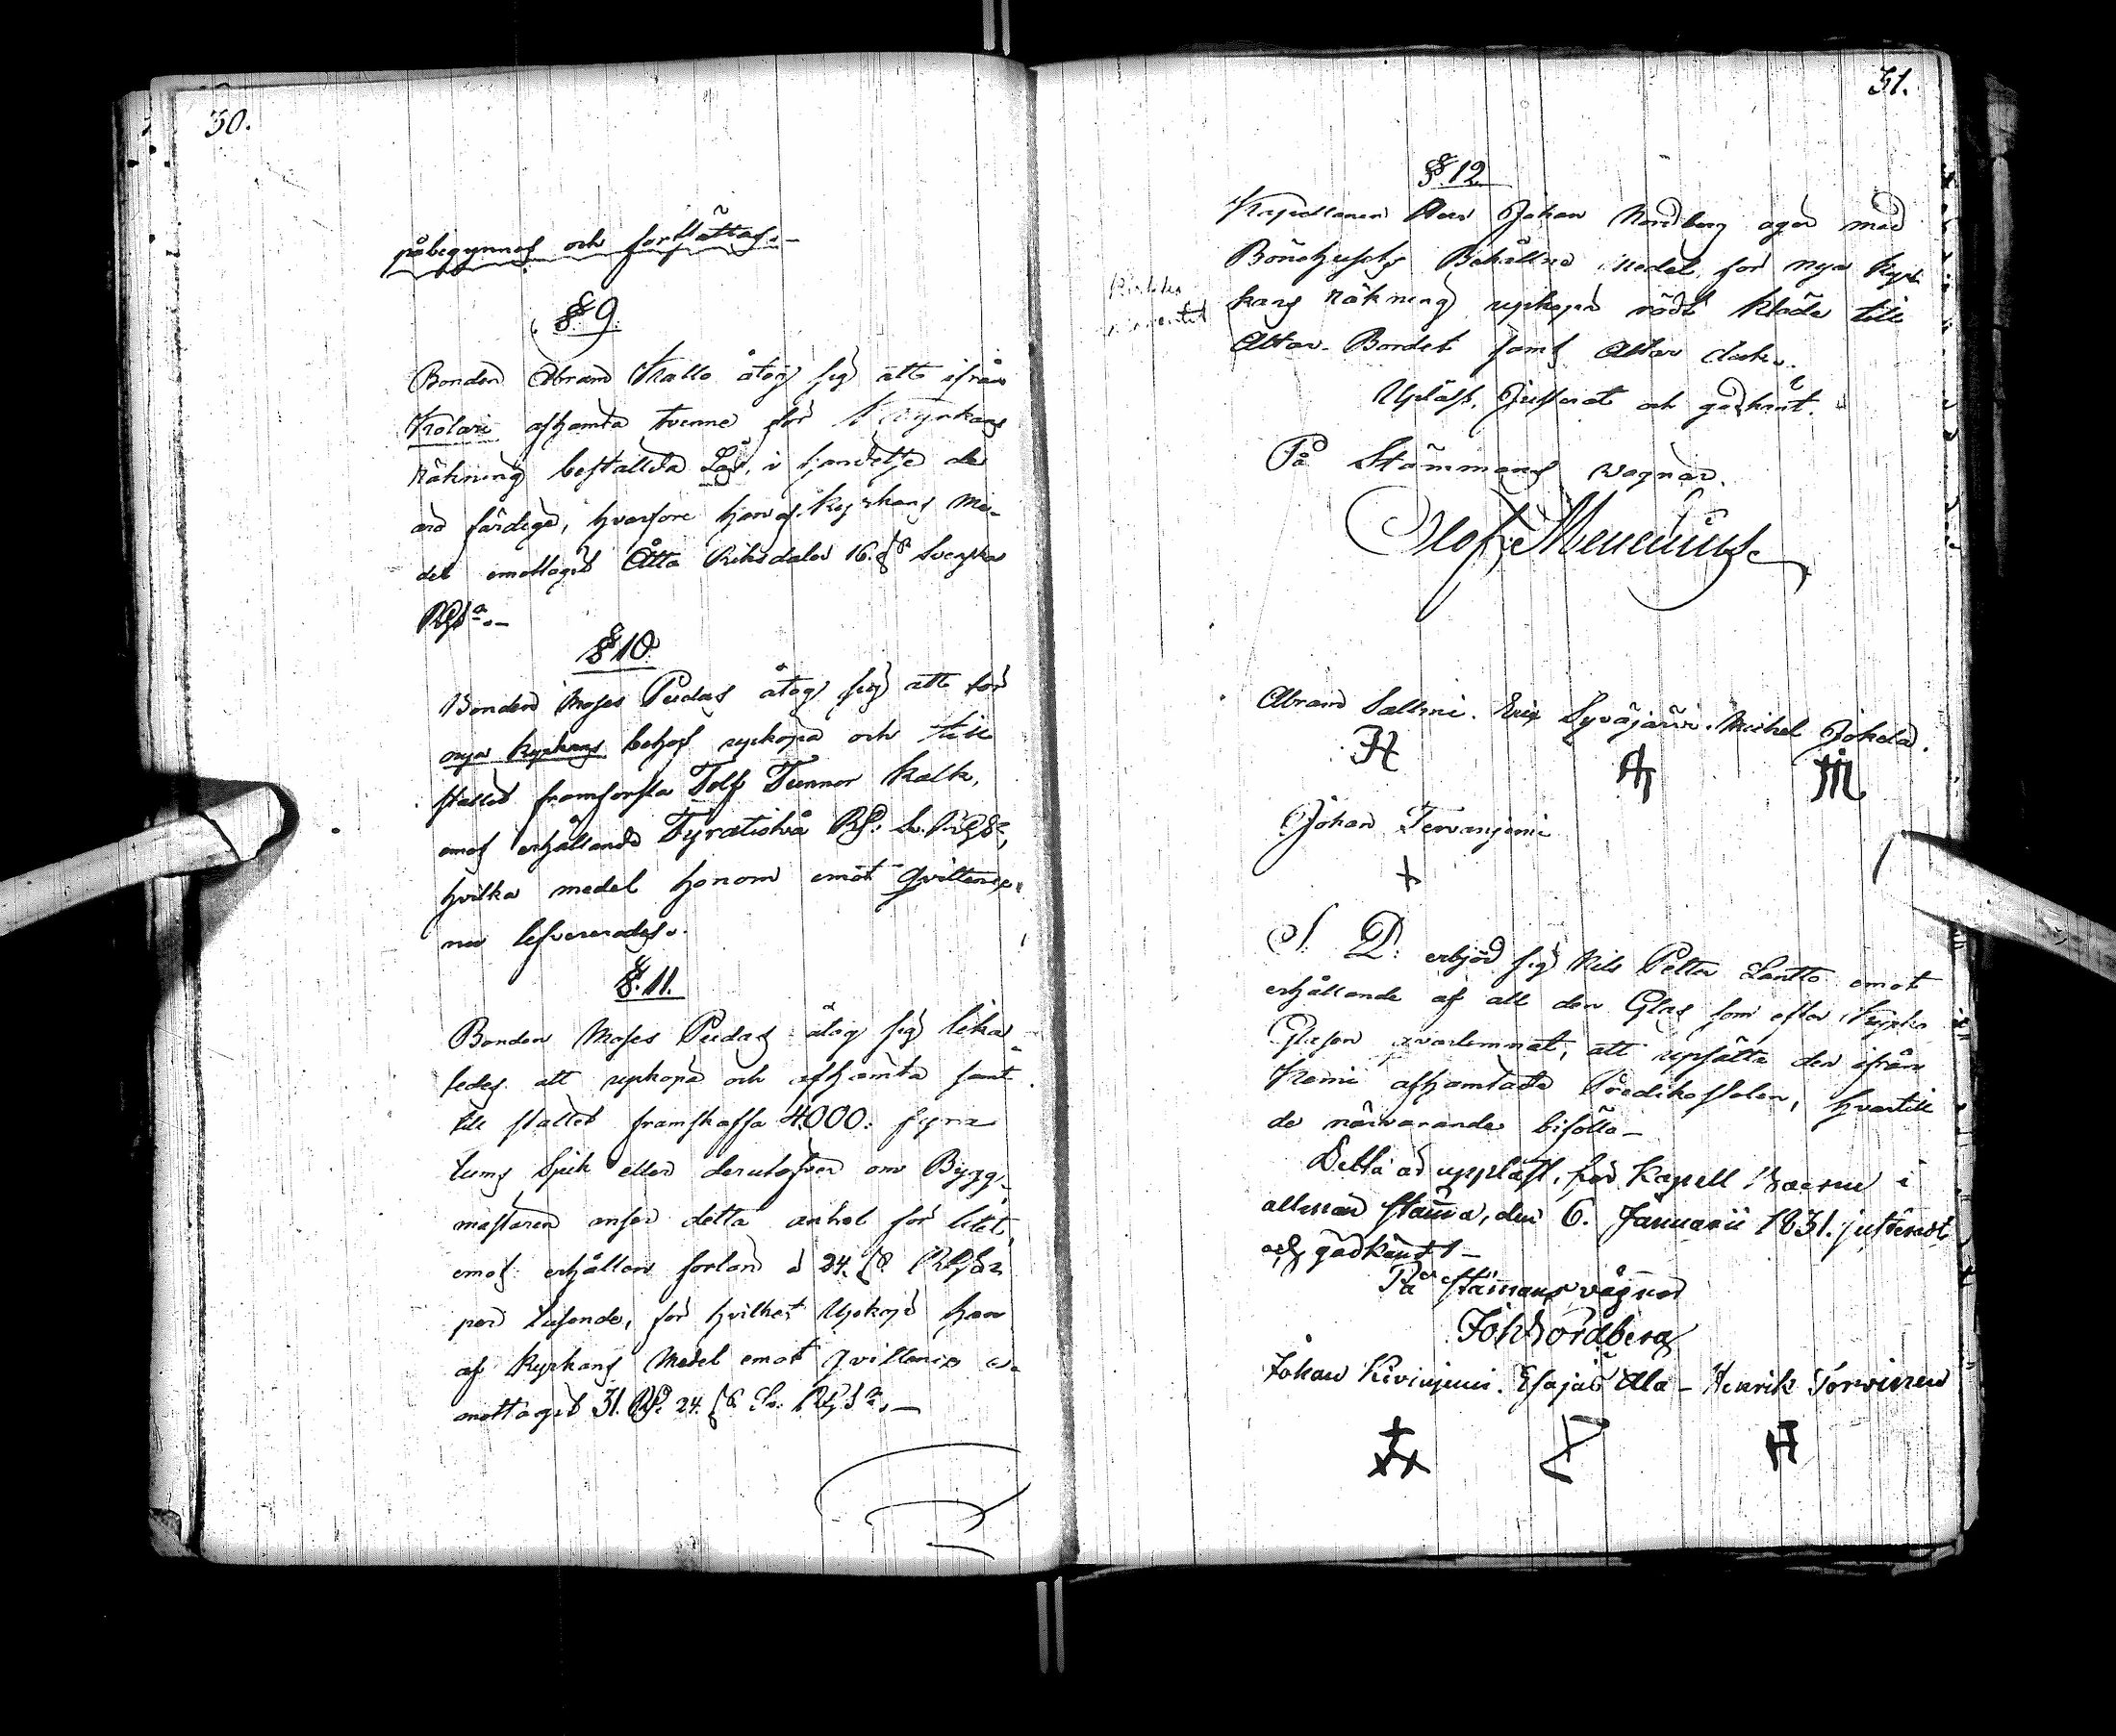 30.
påbegynnas och fortsättas.-
§ 9.
Bonden Abram Kallo åtog sig att ifrån
Kolari afhämta tvenne för Kyrkans
räkning beställda Lås, i händelse de
äro färdige, hvarföre han af Kyrkans me-
del emottagit Åtta Riksdaler 16. s Svenska
Rgds.-
§ 10.
Bonden Moses Pudas åtog sig att för
nya kyrkans behof upköpa och till
stället framforsla Tolf Tunnor Kalk,
emot erhållande Fyratiotvå Rd. Sv. Rgds,
hvilka medel honom emot qvittence
nu lefvererades.
§. 11.
Bonden Moses Pudas åtog sig lika-
ledes att upköpa och afhämta samt
till stället framskaffa 4000. fyra
tums Spik eller derutöfver om Bygg-
mästaren anser detta antal för litet,
emot erhållen forlön à 24. s Rgds
per tusende, för hvilket Upköp han
af Kyrkans Medel emot qvittence e-
mottagit 31. Rd. 24. s Sv. Rgds.-
31.
§ 12
Kapellanen Herr Johan Nordberg äger med
Bönehusets Behållne medel för nya Kyr-
kans räkning upköpa rödt kläde till
Altar-Bordet samt Altar duk.
Upläst, Justerat och godkänt.
På Stämmans vägnar.
Olof Menecius.
Abram Sallmi. Eric Syväjärvi. Michel Jokela.
Johan Tervaniemi
S. D. erbjöd sig Nils Petter Lantto emot
erhållande af all den Glas som efter Kyrko
Glasen qvarlemnat, att upsätta den ifrån
Kemi afhämtade Predikostolen, hvartill
de närvarande biföllo-
Detta är uppläst, för Kapell Boerne i
allmän stämma, den 6. Januarii 1831. justerat
och godkänt-
På stämmans vägnar
Joh Nordberg
Johan Kiviniemi. Esajas Ala- Henrik Torvinen